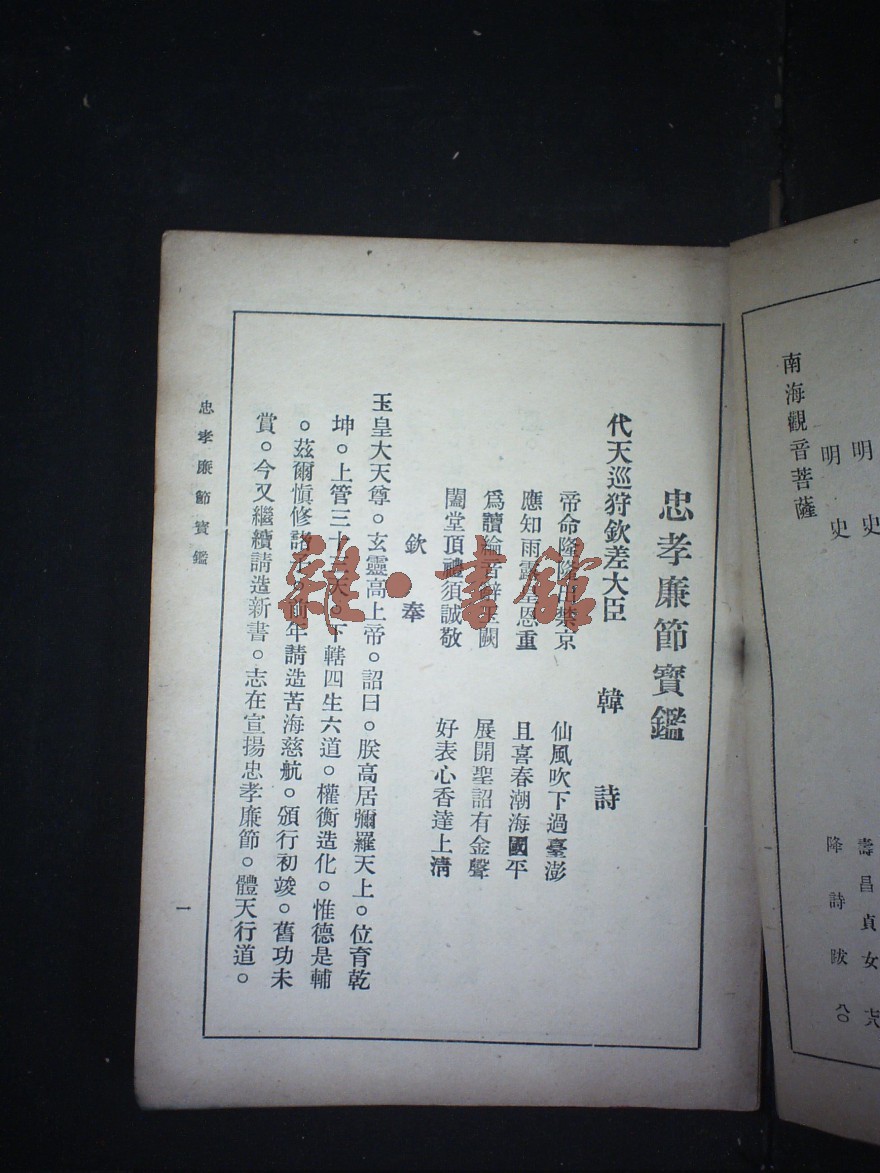 明史 壽昌貞女
明史 降詩跋 八〇
南海觀音菩薩
忠孝廉節寶鑑
代天巡狩欽差大臣 韓 詩
帝命隆隆出禁京 仙風吹下過臺澎
應知雨露皇恩重 且喜春潮海國平
爲讀綸音辭玉闕 展開聖詔有金聲
闔堂頂禮須誠敬 好表心香達上清
欽奉
玉皇大天尊。玄靈高上帝。詔曰。朕高居彌羅天上。位育乾
坤。上管三十三天。下轄四生六道。權衡造化。惟德是輔
。茲爾愼修諸子。前年請造苦海慈航。頒行初竣。舊功未
賞。今又繼續請造新書。志在宣揚忠孝廉節。體天行道。
忠孝廉節寶鑑 一
雜·書館